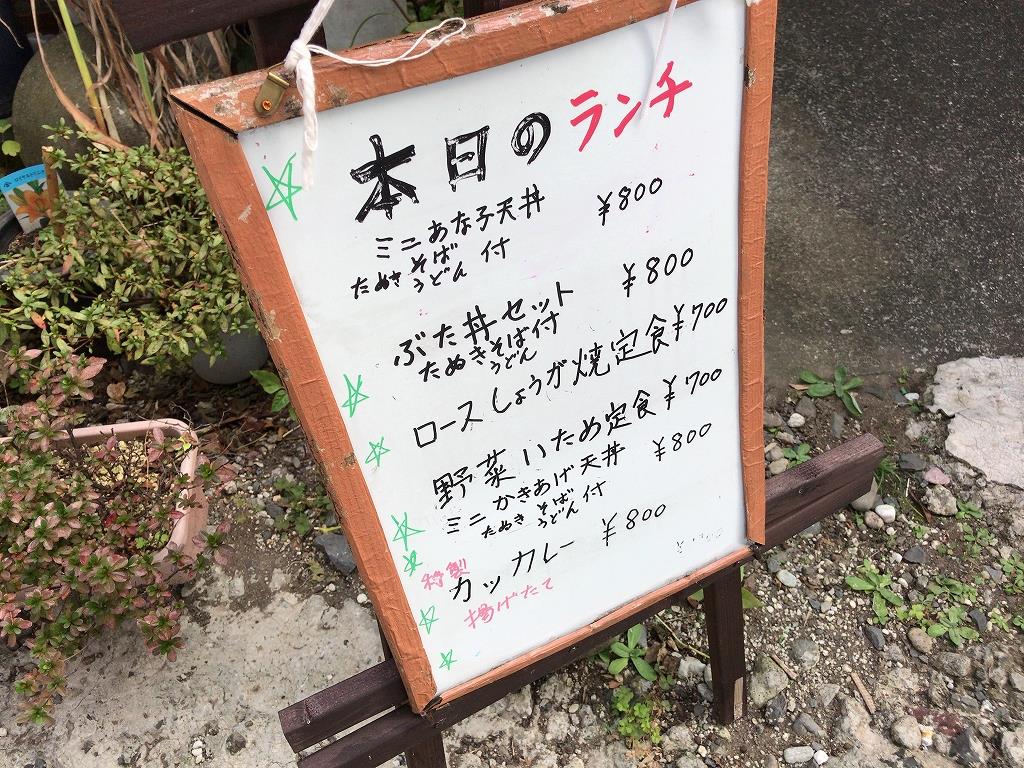 本日のランチ
ミニあな子天丼 ¥800
たぬき そば うどん 付
ぶた丼セット ¥800
たぬき そば うどん 付
ロースしょうが焼定食 ¥700
野菜いため定食 ¥700
ミニかきあげ天丼 ¥800
たぬき そば うどん 付
特製
カッカレー ¥800
揚げたて